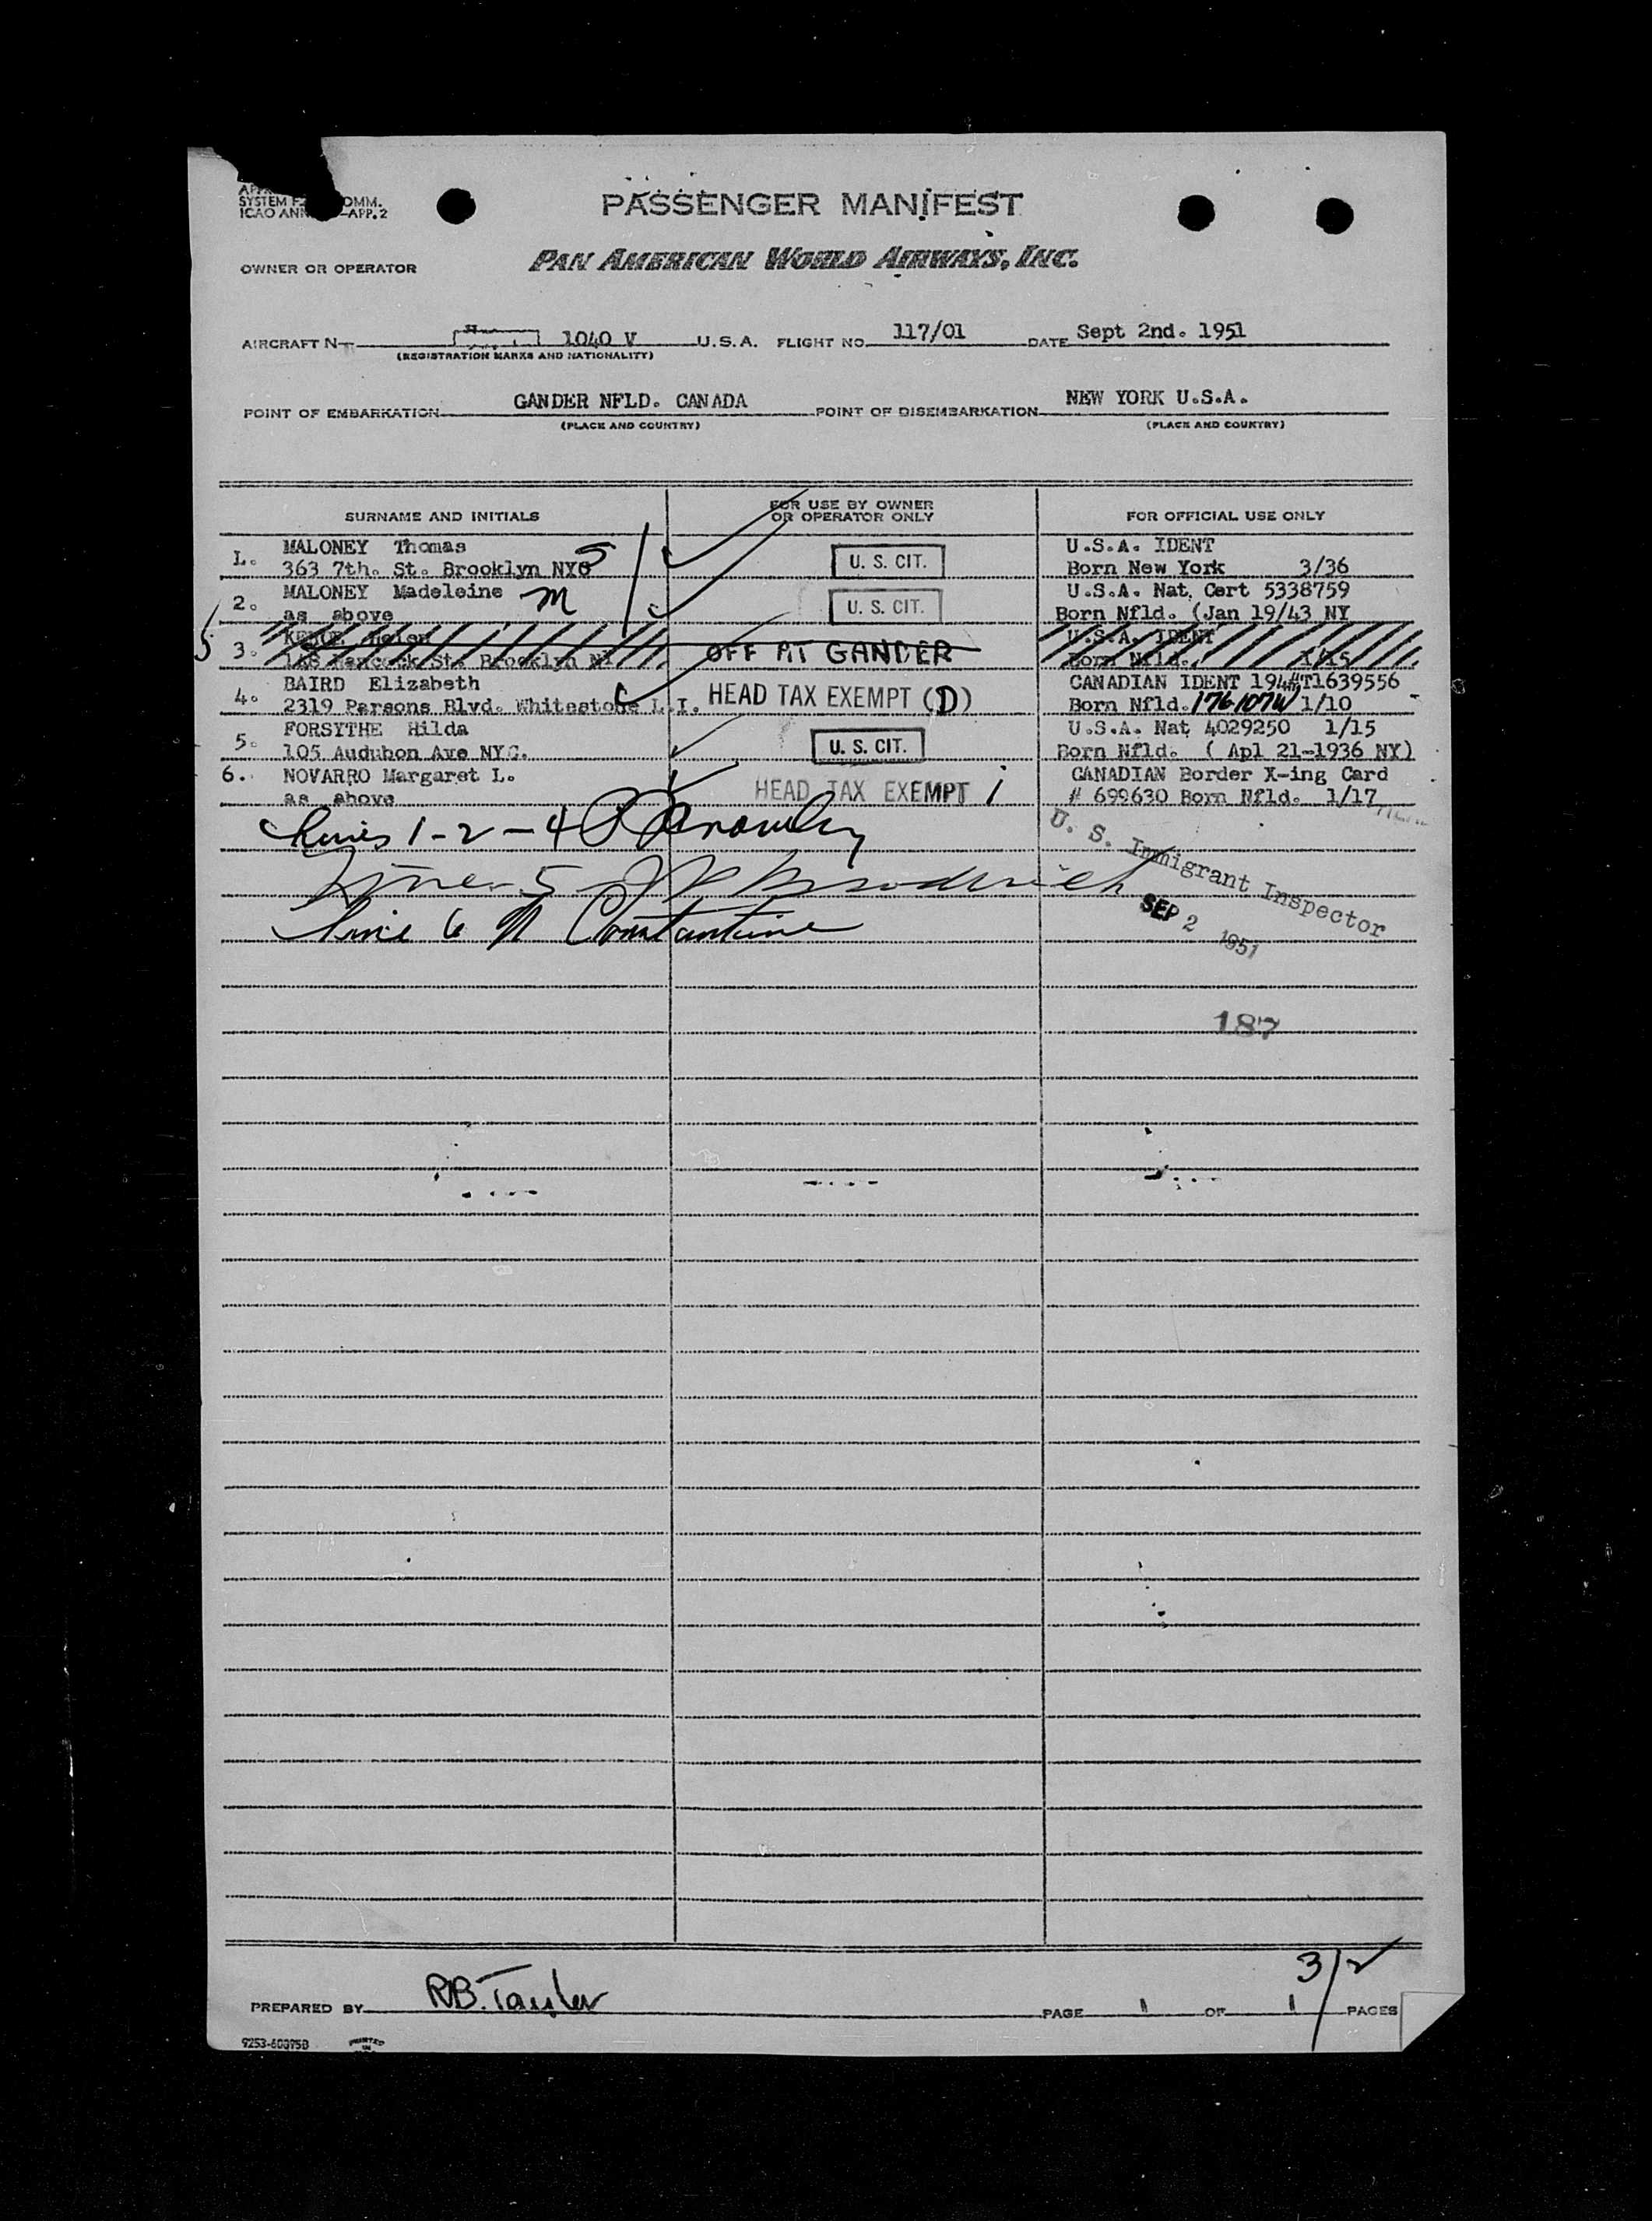 SYSTEM OMM.
ICAO ANN -APP. 2
PASSENGER MANIFEST
OWNER OR OPERATOR
PAN AMERICAN WORLD AIRWAYS, INC.
AIRCRAFT N 1040 V U.S.A. FLIGHT NO. 117/01 DATE Sept 2nd. 1951
(REGISTRATION MARKS AND NATIONALITY)
POINT OF EMBARKATION GANDER NFLD. CANADA POINT OF DISEMBARKATION NEW YORK U.S.A.
(PLACE AND COUNTRY) (PLACE AND COUNTRY)
SURNAME AND INITIALS
FOR USE BY OWNER
OR OPERATOR ONLY
FOR OFFICIAL USE ONLY
1. MALONEY Thomas S U.S.A. IDENT
363 7th. St. Brooklyn NYC U. S. CIT. Born New York 3/36
2. MALONEY Madeleine M U.S.A. Nat. Cert 5338759
as above U. S. CIT. Born Nfld. (Jan 19/43 NY
5 3. Helen OFF AT GANDER U.S.A. IDENT
Hancock St. Brooklyn NY Born Nfld. 1/15
4. BAIRD Elizabeth CANADIAN IDENT 194 #T1639556
2319 Parsons Blvd. Whitestone L.I. HEAD TAX EXEMPT (D) Born Nfld. 176107W 1/10
5. FORSYTHE Hilda U.S.A. Nat 4029250 1/15
105 Audubon Ave NYC. U. S. CIT. Born Nfld. ( Apl 21-1936 NY)
6. NOVARRO Margaret L. CANADIAN Border X-ing Card
as above HEAD TAX EXEMPT i # 699630 Born Nfld. 1/17
Lines 1-2-4
Line 5
Line 6 N Constantine
U. S. Immigrant Inspector
SEP 2 1951
187
3/2
PREPARED BY R.B. Taylor PAGE 1 OF 1 PAGES
9253-60075B PRINTED
IN